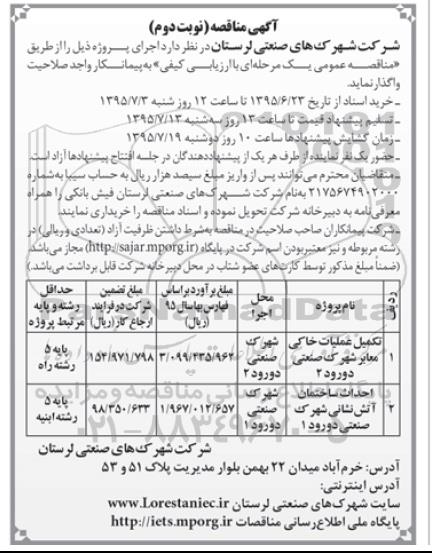 آگهی مناقصه (نوبت دوم)
شرکت شهرک‌های صنعتی لرستان در نظر دارد اجرای پروژه ذیل را از طریق
«مناقصه عمومی یک مرحله‌ای با ارزیابی کیفی» به پیمانکار واجد صلاحیت
واگذار نماید.
ـ خرید اسناد از تاریخ ۱۳۹۵/۶/۲۳ تا ساعت ۱۲ روز شنبه ۱۳۹۵/۷/۳
ـ تسلیم پیشنهاد قیمت تا ساعت ۱۳ روز سه‌شنبه ۱۳۹۵/۷/۱۳
ـ زمان گشایش پیشنهادها ساعت ۱۰ روز دوشنبه ۱۳۹۵/۷/۱۹
ـ حضور یک نفر نماینده از طرف هر یک از پیشنهاددهندگان در جلسه افتتاح پیشنهادها آزاد است.
ـ متقاضیان محترم می‌توانند پس از واریز مبلغ سیصد هزار ریال به حساب سیبا به‌شماره
به‌نام شرکت شهرک‌های صنعتی لرستان فیش بانکی را همراه
معرفی‌نامه به دبیرخانه شرکت تحویل نموده و اسناد مناقصه را خریداری نمایند.
ـ شرکت پیمانکاران صاحب صلاحیت در مناقصه به‌شرط داشتن ظرفیت آزاد (تعدادی و ریالی) در
رشته مربوطه و نیز معتبر بودن اسم شرکت در پایگاه (http://sajar.mporg.ir) مجاز می‌باشد.
(ضمناً مبلغ مذکور توسط کارت‌های عضو شتاب در محل دبیرخانه شرکت قابل برداشت می‌باشد.)
ردیف | نام پروژه | محل اجرا | مبلغ برآورد براساس فهارس بها سال ۹۵ (ریال) | مبلغ تضمین شرکت در فرایند ارجاع کار (ریال) | حداقل رشته و پایه مرتبط پروژه
۱ | تکمیل عملیات خاکی معابر شهرک صنعتی دورود ۲ | شهرک صنعتی دورود ۲ | ۳/۰۹۹/۴۳۵/۹۶۴ | ۱۵۴/۹۷۱/۷۹۸ | پایه ۵ رشته راه
۲ | احداث ساختمان آتش نشانی شهرک صنعتی دورود ۱ | شهرک صنعتی دورود ۱ | ۱/۹۶۷/۰۱۲/۶۵۷ | ۹۸/۳۵۰/۶۳۳ | پایه ۵ رشته ابنیه
شرکت شهرک‌های صنعتی لرستان
آدرس: خرم‌آباد میدان ۲۲ بهمن بلوار مدیریت پلاک ۵۱ و ۵۳
آدرس اینترنتی:
سایت شهرک‌های صنعتی لرستان www.Lorestaniec.ir
پایگاه ملی اطلاع‌رسانی مناقصات http://iets.mporg.ir